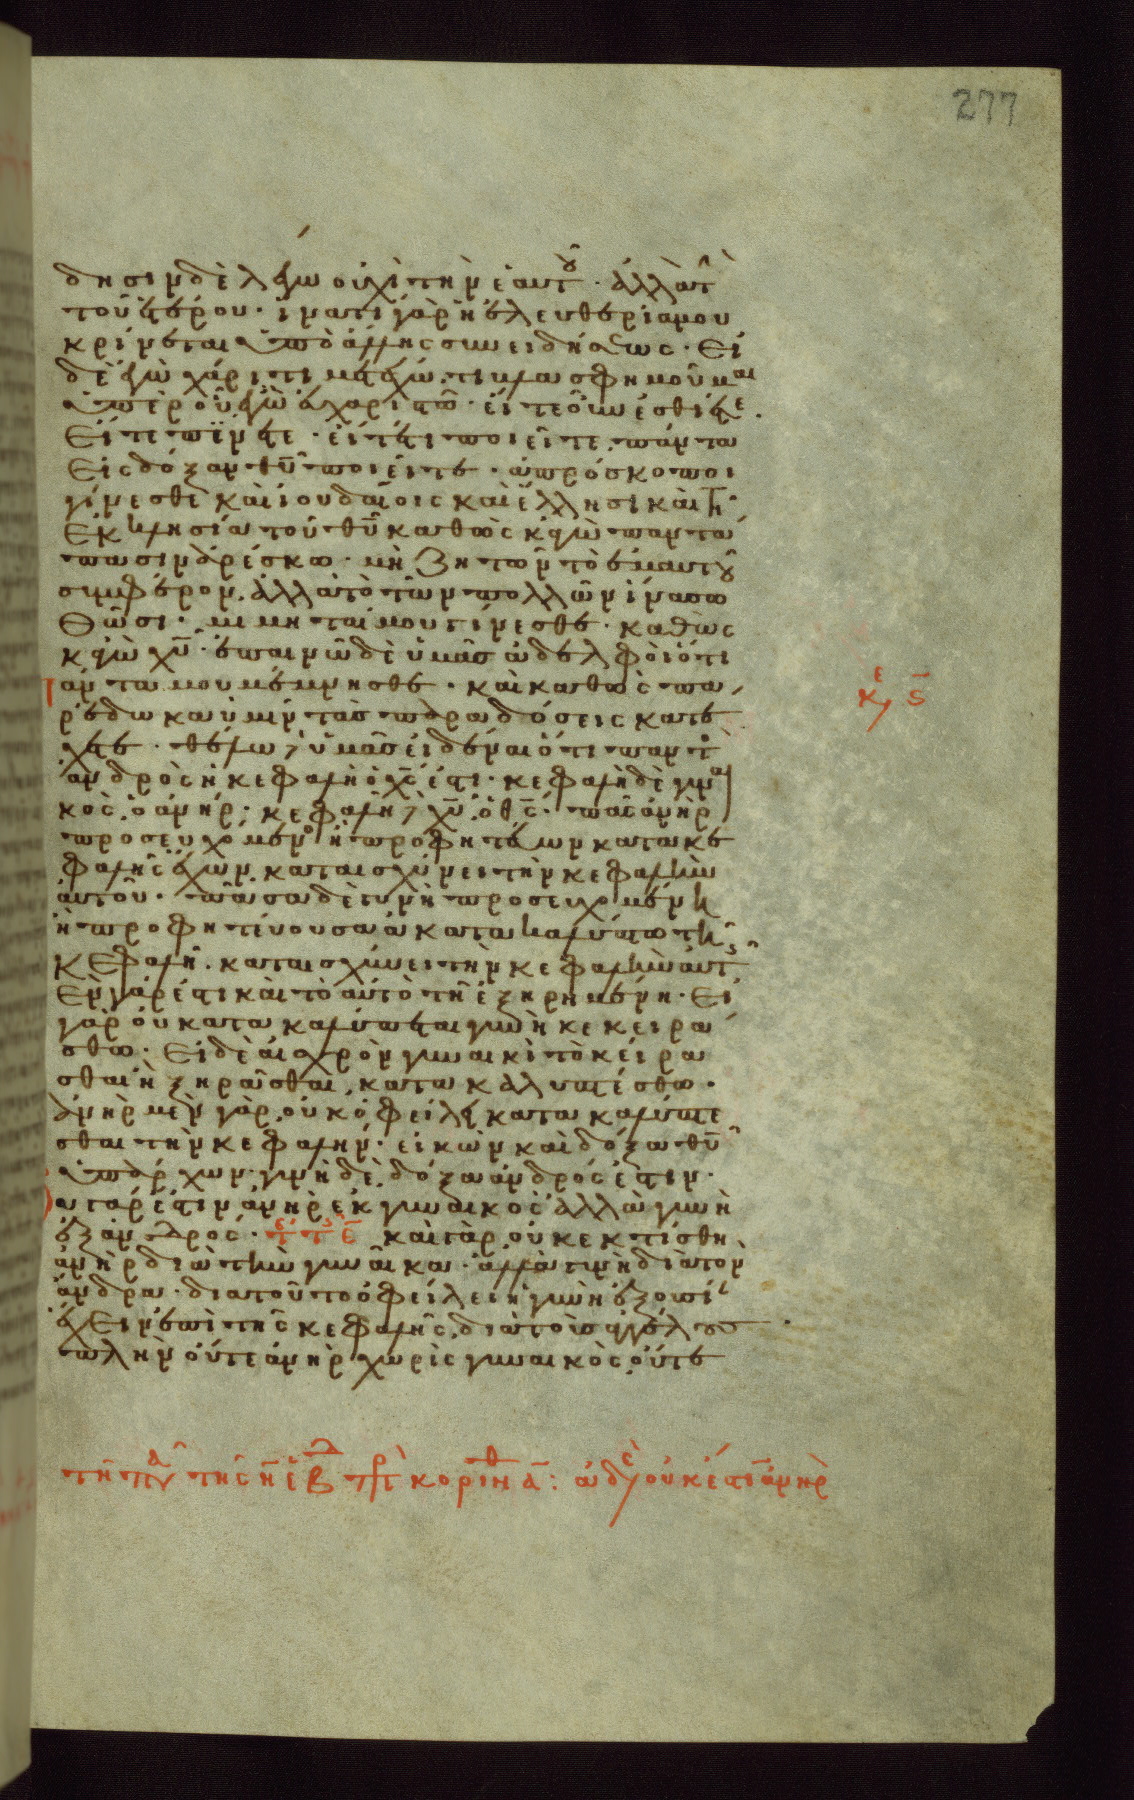 277
δησιν δὲ λέγω οὐχὶ τὴν ἑαυτοῦ · ἀλλὰ τ
τοῦ ἑτέρου · ἱνατί γὰρ ἡ ἐλευθερία μου
κρίνεται ὑπὸ ἄλλης συνειδήσεως · Εἰ
δὲ ἐγὼ χάριτι μετέχω, τί βλασφημοῦμαι
ὑπὲρ οὗ ἐγὼ εὐχαριστῶ · εἴτε οὖν ἐσθίετε ·
Εἴτε πίνετε · εἴτε τι ποιεῖτε, πάντα
Εἰς δόξαν θυ ποιεῖτε · ἀπρόσκοποι
γίνεσθε καὶ ἰουδαίοις καὶ ἕλλησι καὶ τῆ
Εκκλησία τοῦ θυ καθὼς κἀγὼ πάντα
πᾶσιν ἀρέσκω · μὴ ζητῶν τὸ ἐμαυτοῦ
συμφέρον, ἀλλὰ τὸ τῶν πολλῶν ἵνα σω
θῶσι · μιμηταί μου γίνεσθε · καθὼς
κἀγὼ χυ · ἐπαινῶ δὲ ὑμᾶς ἀδελφοὶ ὅτι
πάντα μου μέμνησθε · καὶ καθὼς πα
ρέδωκα ὑμῖν τὰς παραδόσεις κατέ
χετε · θέλω δὲ ὑμᾶς εἰδέναι ὅτι παντὸς
ἀνδρὸς ἡ κεφαλὴ ὁ χς ἐστι · κεφαλὴ δὲ γυναι
κὸς, ὁ ἀνήρ · κεφαλὴ δὲ χυ, ὁ θς · πᾶς ἀνὴρ
προσευχόμενος ἢ προφητεύων κατὰ κε
φαλῆς ἔχων, καταισχύνει τὴν κεφαλὴν
αὐτοῦ · πᾶσα δὲ γυνὴ προσευχομένη
ἢ προφητεύουσα ἀκατακαλύπτω τῆ
Κεφαλῆ, καταισχύνει τὴν κεφαλὴν αὐτῆς
Εν γάρ ἐστι καὶ τὸ αὐτὸ τῆ ἐξυρημένη · Εἰ
γὰρ οὐ κατακαλύπτεται γυνὴ κε κειρά
σθω · Εἰ δὲ αἰσχρὸν γυναικὶ τὸ κείρα
σθαι ἢ ξυρᾶσθαι, κατακαλυπτέσθω ·
ἀνὴρ μὲν γὰρ, οὐκ ὀφείλει κατακαλύπτε
σθαι τὴν κεφαλήν · εἰκὼν καὶ δόξα θυ
ὑπάρχων · γυνὴ δὲ, δόξα ἀνδρός ἐστιν ·
Ου γάρ ἐστιν ἀνὴρ ἐκ γυναικὸς ἀλλὰ γυνὴ
ἐξ ἀνδρός · καὶ γὰρ οὐκ ἐκτίσθη
ἀνὴρ διὰ τὴν γυναῖκα · ἀλλὰ γυνὴ διὰ τὸν
ἄνδρα · διὰ τοῦτο ὀφείλει ἡ γυνὴ ἐξουσί
ἔχειν ἐπὶ τῆς κεφαλῆς, διὰ τοὺς ἀγγέλους ·
πλὴν οὔτε ἀνὴρ χωρὶς γυναικὸς, οὔτε